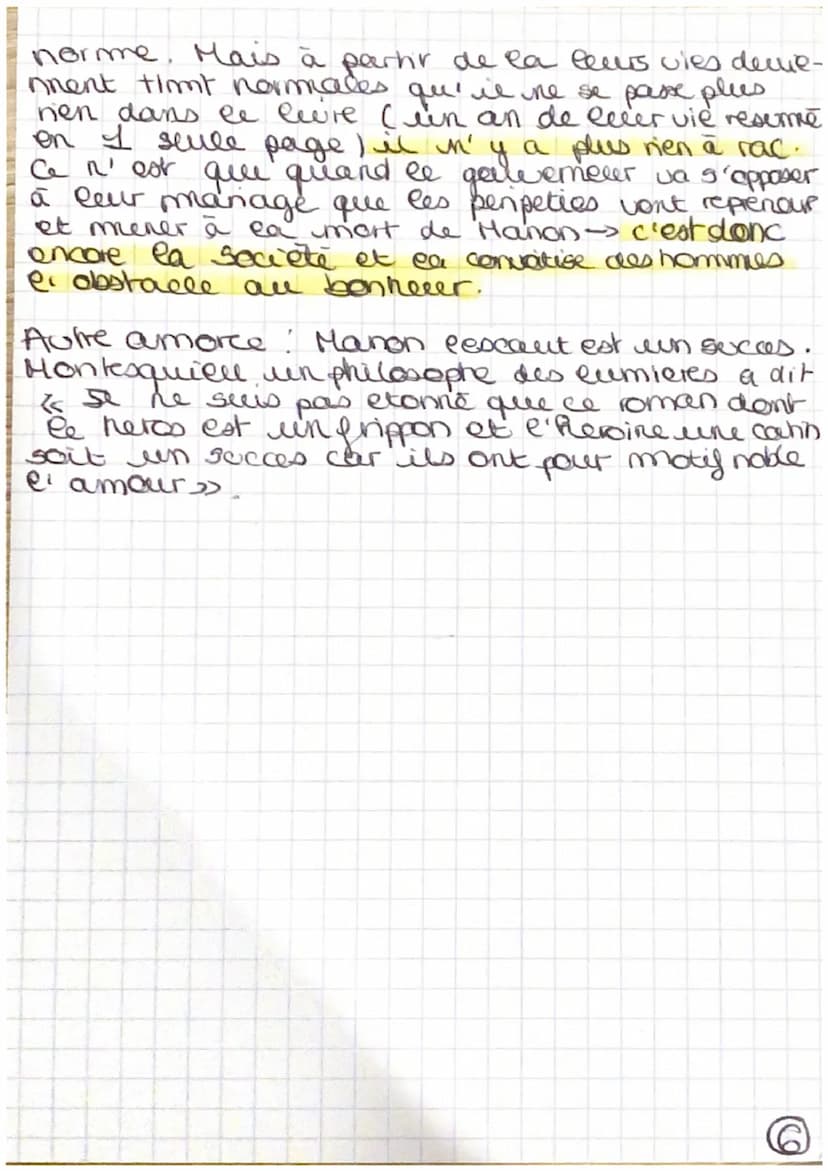 norme. Mais à partir de la leurs vies devie-
nnent tlmt normales qu'il ne se passe plus
rien dans le livre (un an de leur vie resumé
en 1 seule page) il n'y a plus rien à rac.
Ce n'est que quand le gouverneur va s'opposer
à leur mariage que les peripeties vont reprendre
et mener à la mort de Manon → c'est donc
encore la société et la convoitise des hommes
l'obstacle au bonheur.
Autre amorce : Manon Lescaut est un succes.
Montesquieu un philosophe des lumieres a dit
« Je ne suis pas etonné que ce roman dont
le heros est un frippon et l'heroine une catin
soit un succes car ils ont pour motif noble
l'amour ».
6